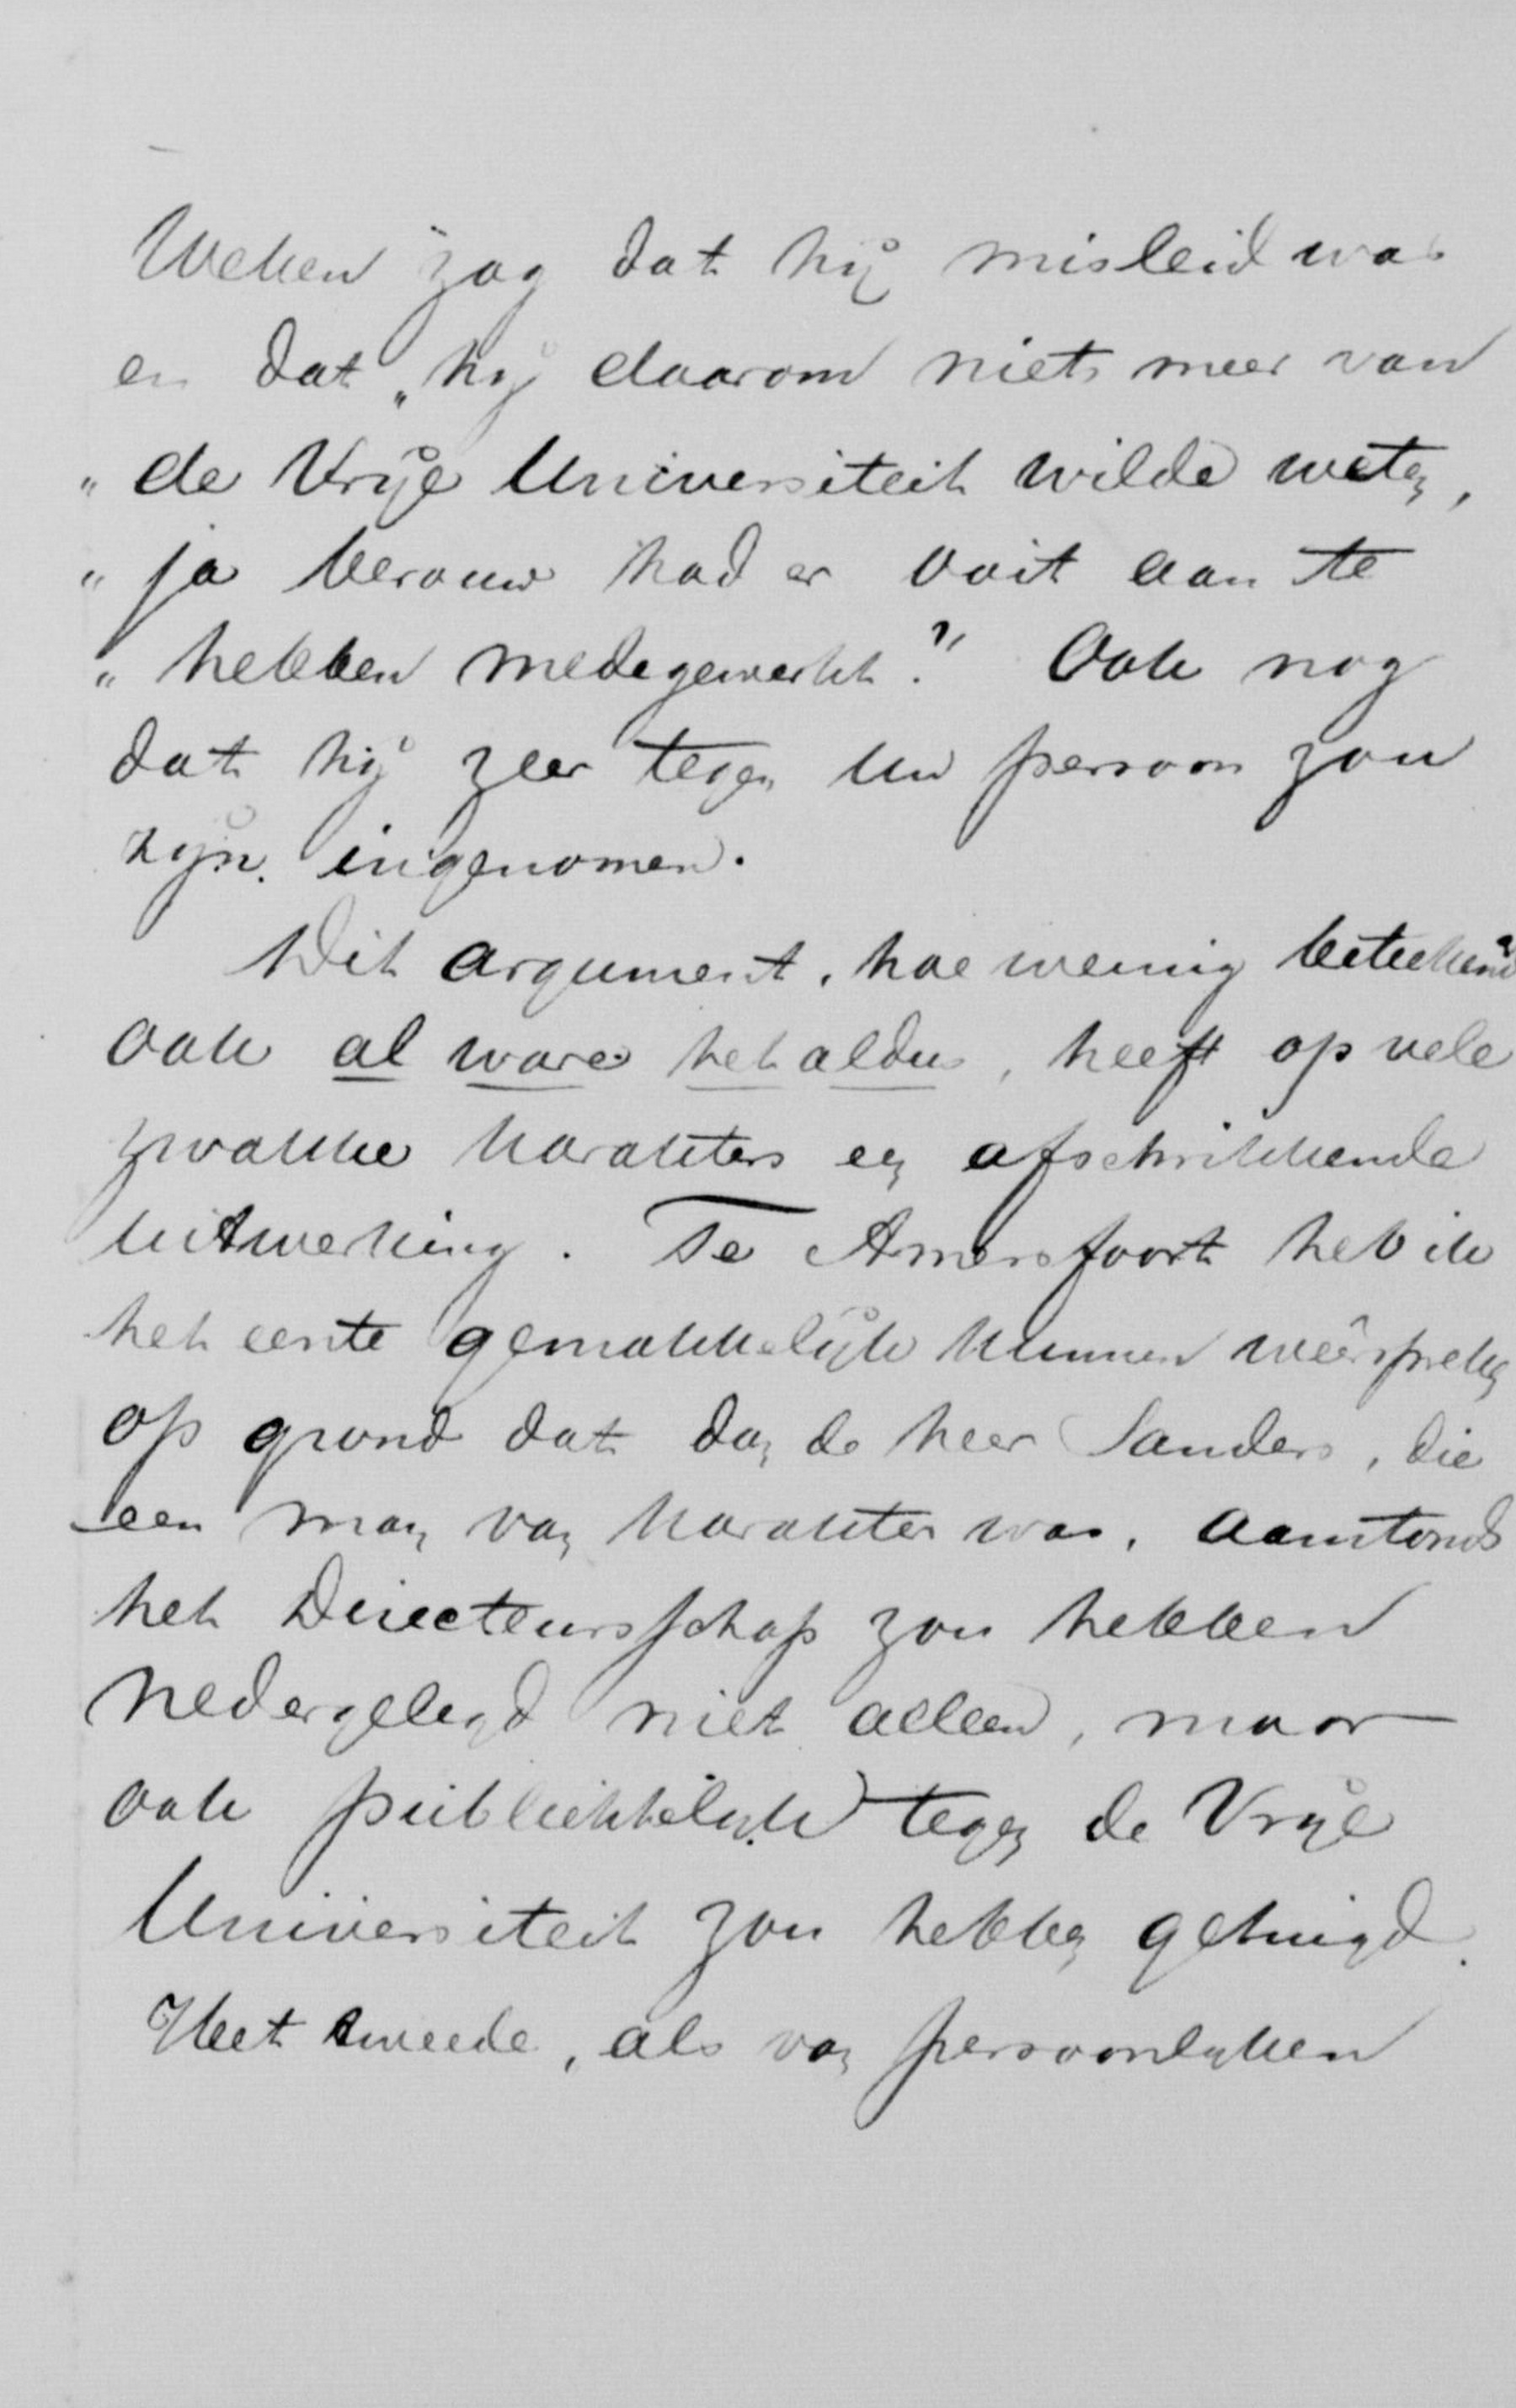 Weken zag dat hij misleid was
en dat „hij daarom niets meer van
„de Vrije Universiteit wilde weten,
„ja berouw had er ooit aan te
„hebben medegewerkt." Ook nog
dat hij zeer tegen uw persoon zou
zijn ingenomen.
Dit argument, hoe weinig beteekend
ook al ware het aldus, heeft op vele
zwakke karakters een afschrikkende
uitwerking. Te Amersfoort heb ik
het eerste gemakkelijk kunnen weêrspreken
op grond dat dan de heer Sanders, die
een man van karakter was, aanstonds
het Directeursschap zou hebben
nedergelegd niet alleen, maar
ook publiekelijk tegen de Vrije
Universiteit zou hebben getuigd.
Het tweede, als van persoonlijken